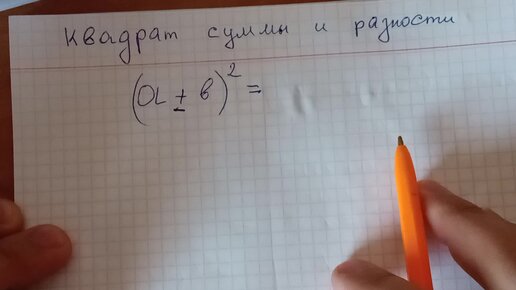 Квадрат суммы и разности
(a ± в)² =